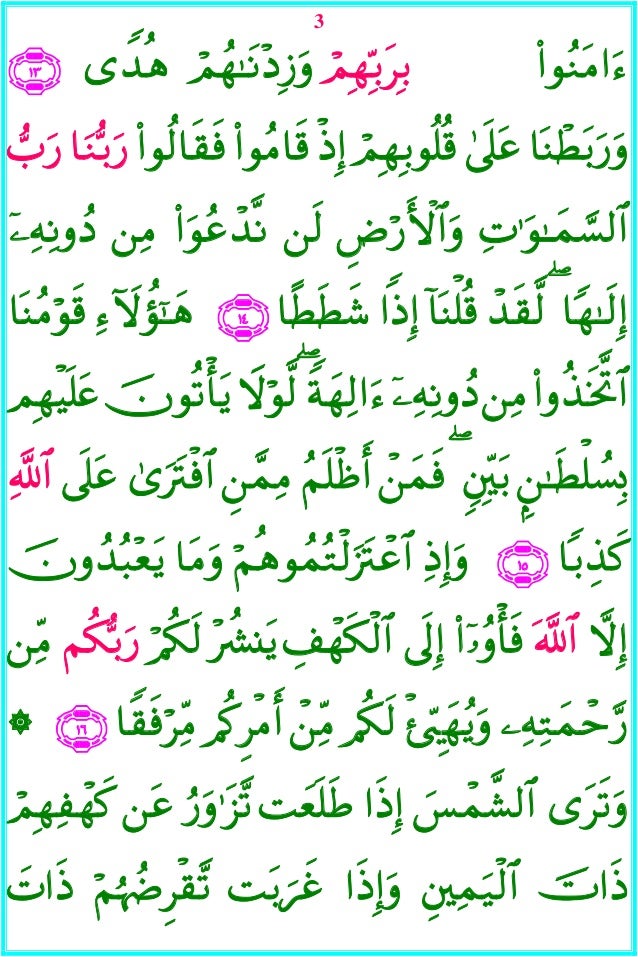 3
ءَامَنُوا۟ بِرَبِّهِمْ وَزِدْنَـٰهُمْ هُدًى ١٣
وَرَبَطْنَا عَلَىٰ قُلُوبِهِمْ إِذْ قَامُوا۟ فَقَالُوا۟ رَبُّنَا رَبُّ
ٱلسَّمَـٰوَٰتِ وَٱلْأَرْضِ لَن نَّدْعُوَا۟ مِن دُونِهِۦٓ
إِلَـٰهًا ۖ لَّقَدْ قُلْنَآ إِذًا شَطَطًا ١٤ هَـٰٓؤُلَآءِ قَوْمُنَا
ٱتَّخَذُوا۟ مِن دُونِهِۦٓ ءَالِهَةً ۖ لَّوْلَا يَأْتُونَ عَلَيْهِم
بِسُلْطَـٰنٍۭ بَيِّنٍ ۖ فَمَنْ أَظْلَمُ مِمَّنِ ٱفْتَرَىٰ عَلَى ٱللَّهِ
كَذِبًا ١٥ وَإِذِ ٱعْتَزَلْتُمُوهُمْ وَمَا يَعْبُدُونَ
إِلَّا ٱللَّهَ فَأْوُۥٓا۟ إِلَى ٱلْكَهْفِ يَنشُرْ لَكُمْ رَبُّكُم مِّن
رَّحْمَتِهِۦ وَيُهَيِّئْ لَكُم مِّنْ أَمْرِكُم مِّرْفَقًا ١٦ ۞
وَتَرَى ٱلشَّمْسَ إِذَا طَلَعَت تَّزَٰوَرُ عَن كَهْفِهِمْ
ذَاتَ ٱلْيَمِينِ وَإِذَا غَرَبَت تَّقْرِضُهُمْ ذَاتَ